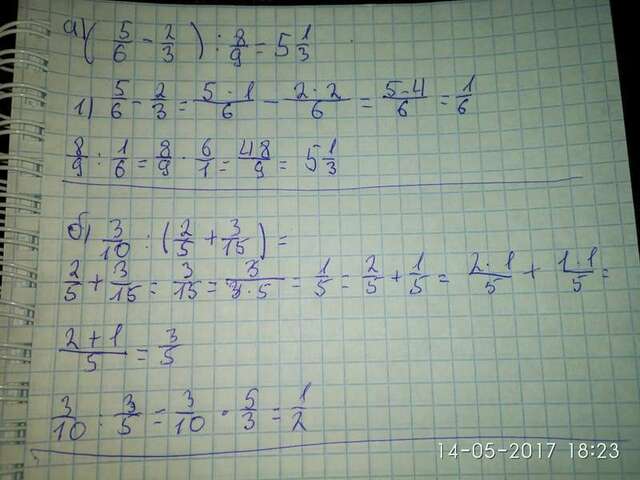 а) (5/6 - 2/3) : 8/9 = 5 1/3
1) 5/6 - 2/3 = 5·1/6 - 2·2/6 = 5-4/6 = 1/6
8/9 : 1/6 = 8/9 · 6/1 = 48/9 = 5 1/3
б) 3/10 : (2/5 + 3/15) =
2/5 + 3/15 = 3/15 = 3/3·5 = 1/5 = 2/5 + 1/5 = 2·1/5 + 1·1/5 =
2+1/5 = 3/5
3/10 : 3/5 = 3/10 · 5/3 = 1/2
14-05-2017 18:23